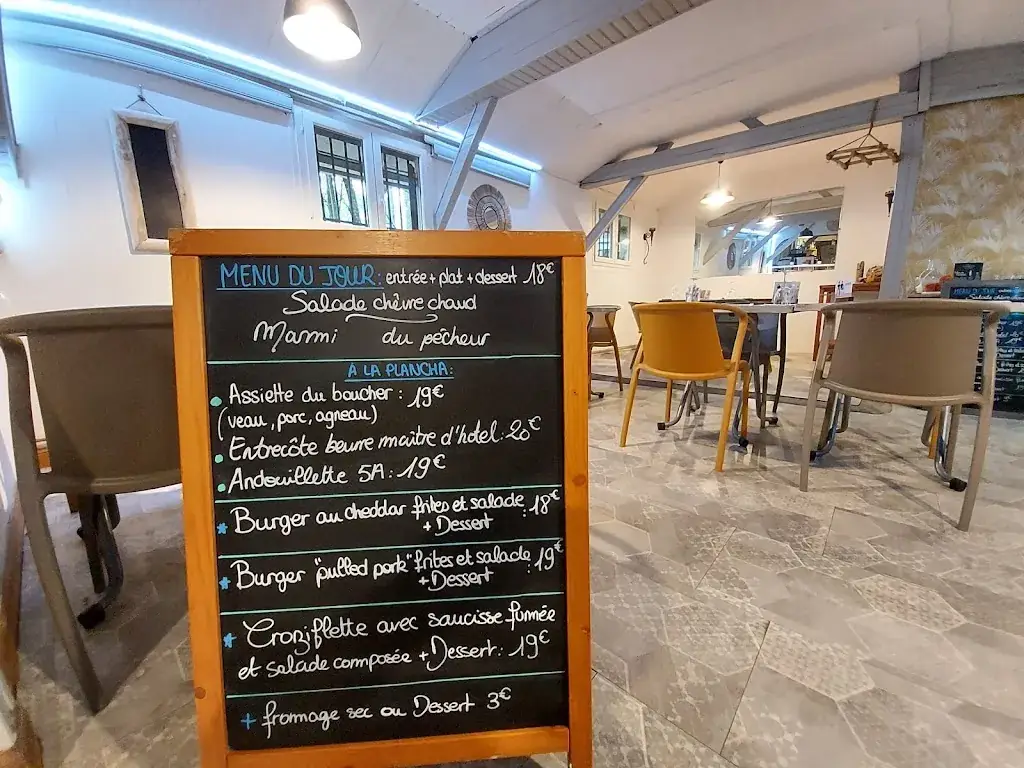 MENU DU JOUR: entrée + plat + dessert 18€
Salade chèvre chaud
Marmi du pêcheur
À LA PLANCHA:
Assiette du boucher : 19€
(veau, porc, agneau)
Entrecôte beurre maître d'hôtel: 20€
Andouillette 5A: 19€
* Burger au cheddar frites et salade: 18€
+ Dessert
* Burger "pulled pork" frites et salade: 19€
+ Dessert
* Croziflette avec saucisse fumée
et salade composée + Dessert: 19€
+ fromage sec ou Dessert 3€
MENU DU JOUR